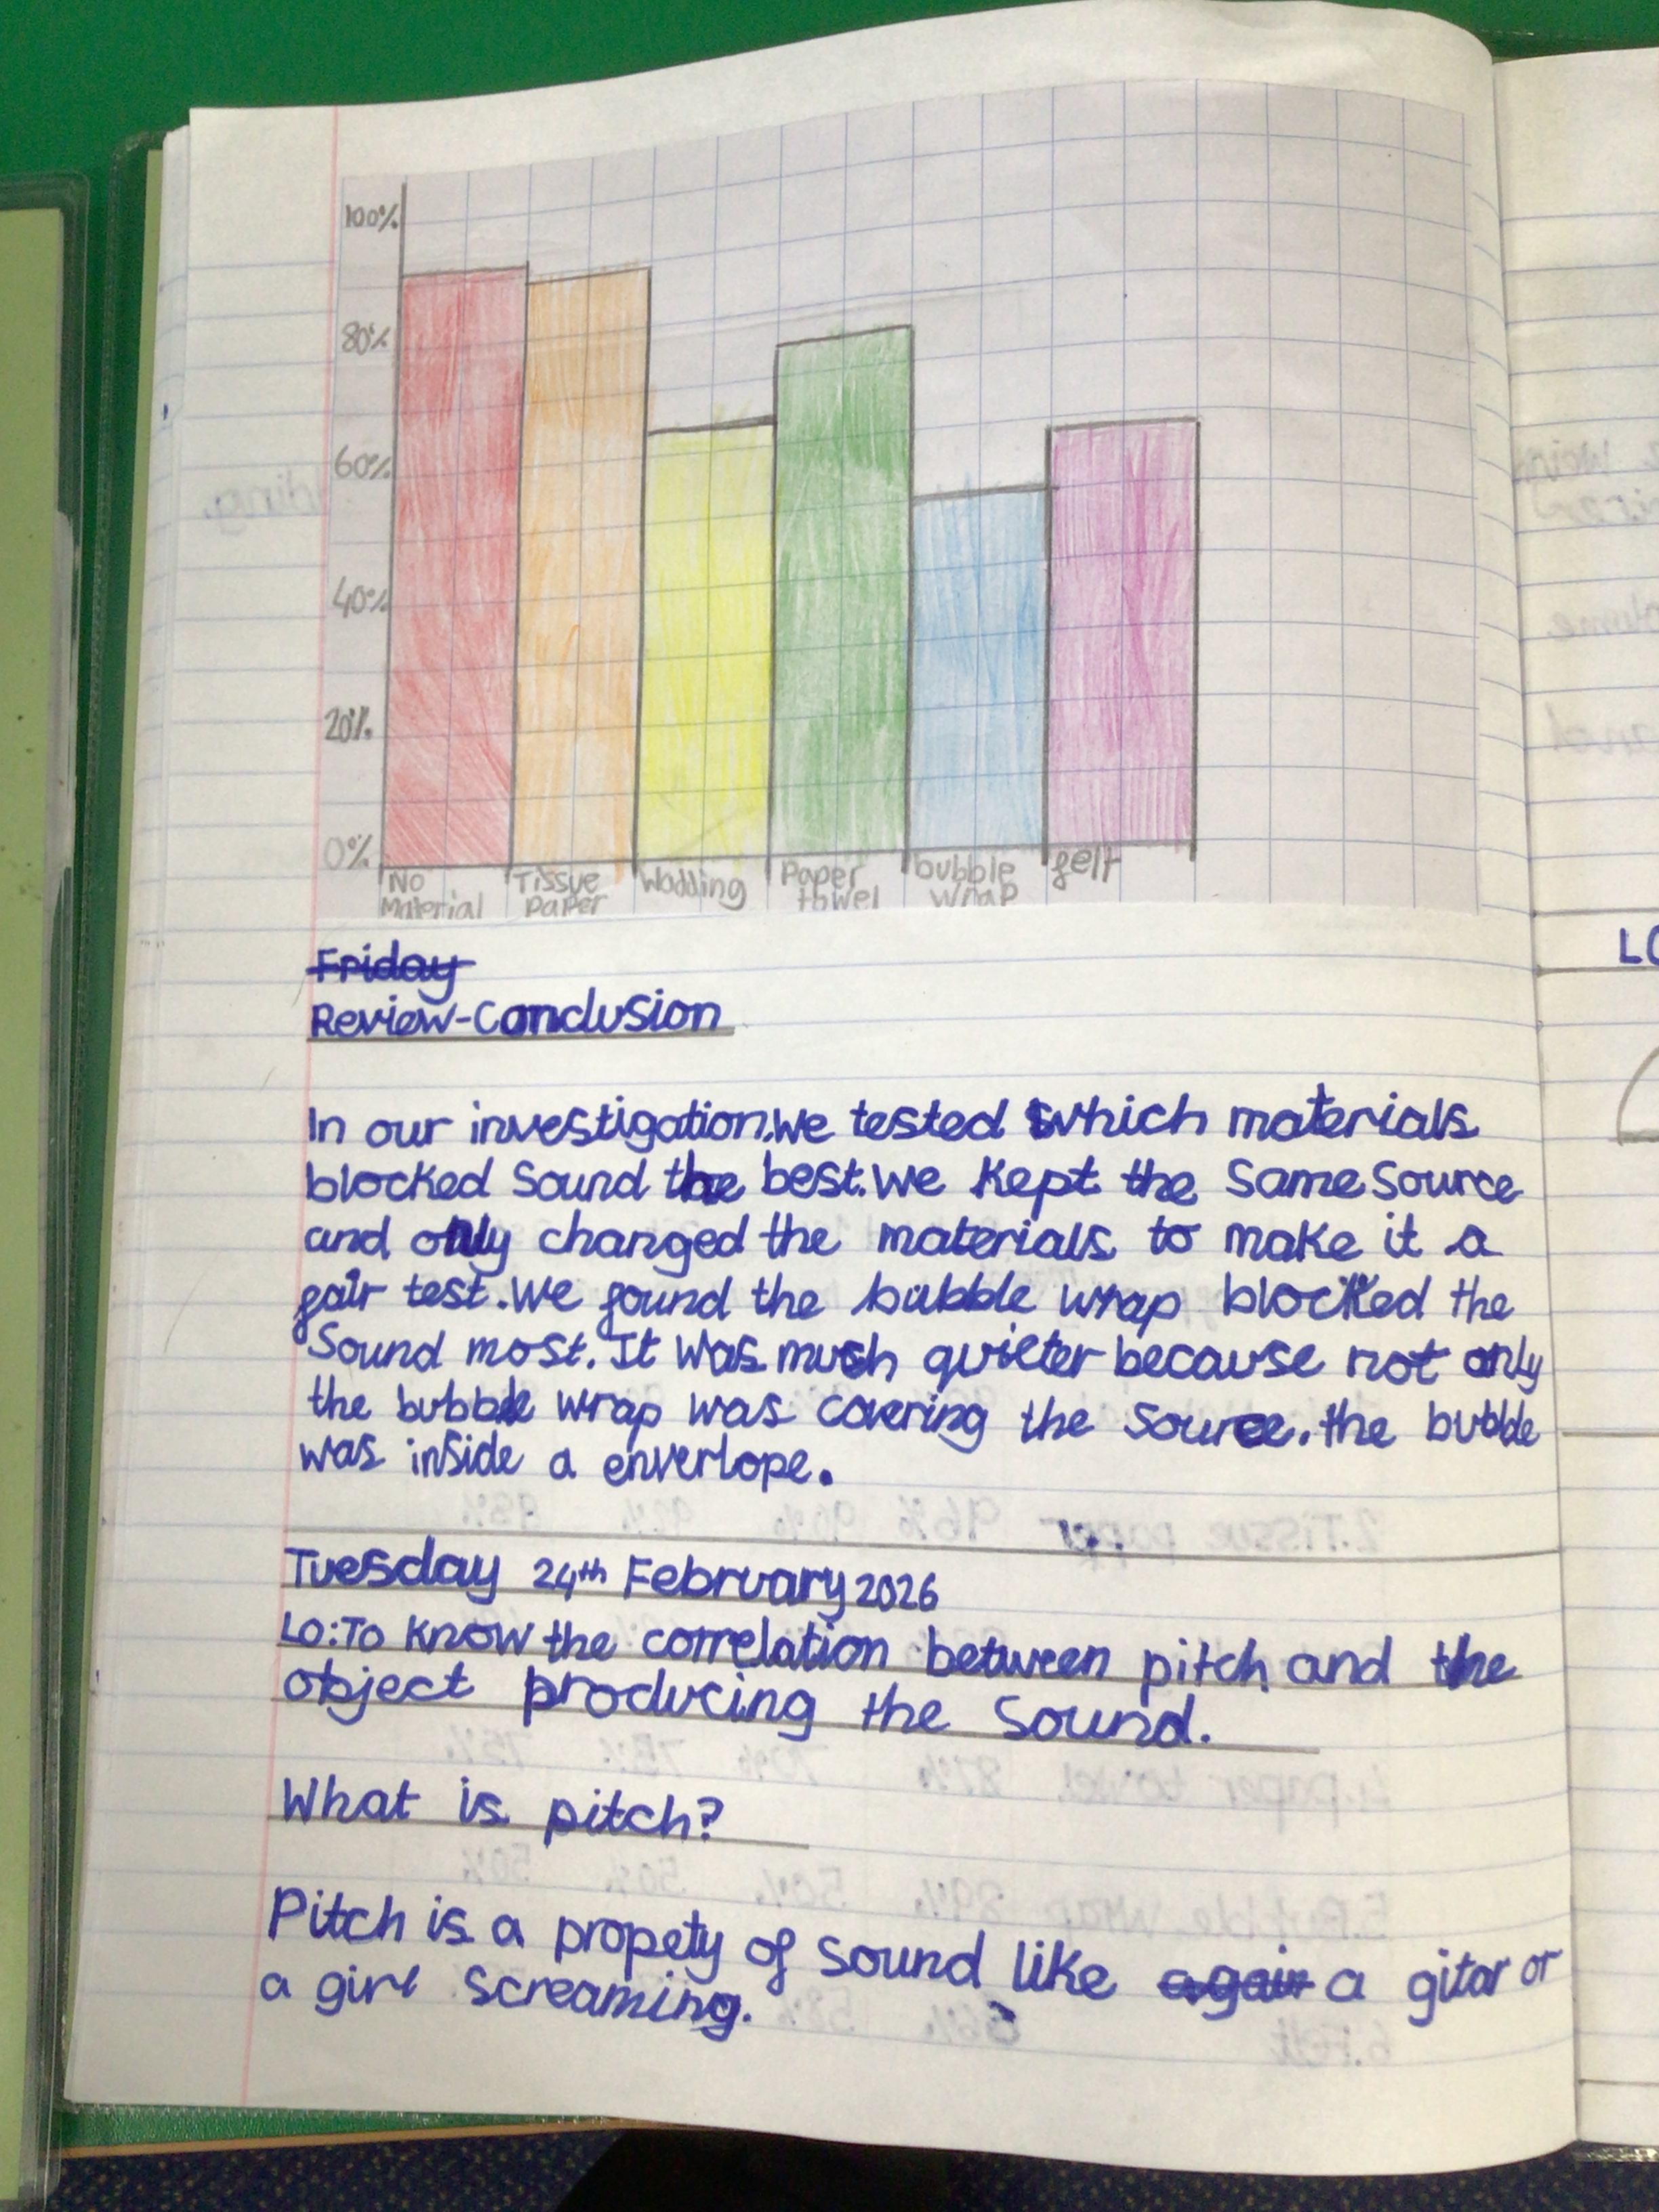 100%
80%
60%
40%
20%
0%
No Material
Tissue Paper
Wadding
Paper towel
bubble wrap
felt
Friday
Review-Conclusion
In our investigation, we tested which materials
blocked Sound the best. We kept the Same Source
and only changed the materials to make it a
fair test. We found the bubble wrap blocked the
Sound most. It was much quieter because not only
the bubble wrap was covering the source. the bubble
was inside a enverlope.
Tuesday 24th February 2026
LO: To know the correlation between pitch and the
object producing the Sound.
What is pitch?
Pitch is a propety of Sound like again a gitar or
a girl screaming.
2. Tissue paper 96% 90%
4. paper towel 87% 70% 75% 75%
5. Bubble wrap 89% 50% 50% 50%
6. Felt 58%
LO